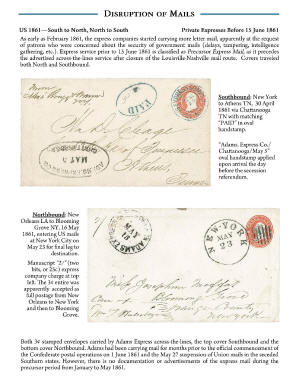 DISRUPTION OF MAILS
US 1861—South to North, North to South Private Expresses Before 15 June 1861
As early as February 1861, the express companies started carrying more letter mail, apparently at the request
of patrons who were concerned about the security of government mails (delays, tampering, intelligence
gathering, etc.). Express service prior to 15 June 1861 is classified as Precursor Express Mail, as it precedes
the advertised across-the-lines service after closure of the Louisville-Nashville mail route. Covers traveled
both North and Southbound.
PAID
Southbound: New
York to Athens
TN, 30 April
1861 via
Chattanooga
TN with matching
"PAID" in oval
handstamp.
"Adams. Express Co./
Chattanooga/May 5"
oval handstamp applied
upon arrival the day
before the secession
referendum.
MAY 5
Athens
Tenn
Northbound: New
Orleans LA to Blooming
Grove NY, 16 May
1861, entering US mails
at New York City on
May 23 for final leg to
destination.
Manuscript "2/-" (two
bits, or 25c) express
company charge at top
left. The 3¢ entire was
apparently accepted as
full postage from New
Orleans to New York
and then to Blooming
Grove.
MAY
16
NEW-YORK
MAY
23
Both 3¢ stamped envelopes carried by Adams Express across-the-lines, the top cover Southbound and the
bottom cover Northbound. Adams had been carrying mail for months prior to the official commencement of
the Confederate postal operations on 1 June 1861 and the May 27 suspension of Union mails in the seceded
Southern states. However, there is no document or advertisements of the express mail during the
precursor period from January to May 1861.